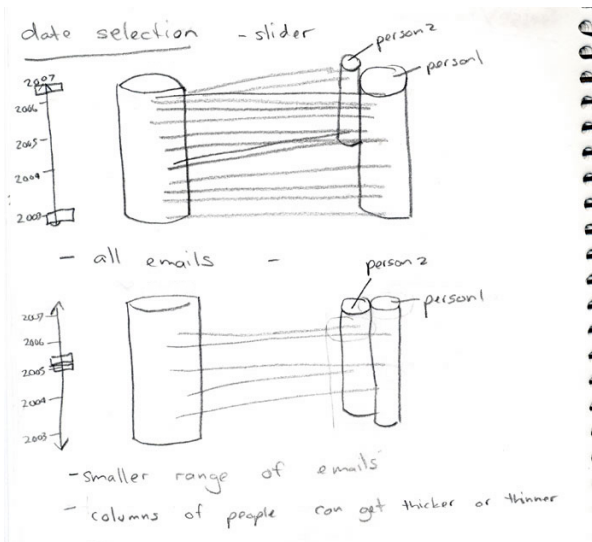 date selection - slider
person 2
person 1
2007
2006
2005
2004
2003
- all emails -
person 2
person 1
2007
2006
2005
2004
2003
- smaller range of emails
- columns of people can get thicker or thinner